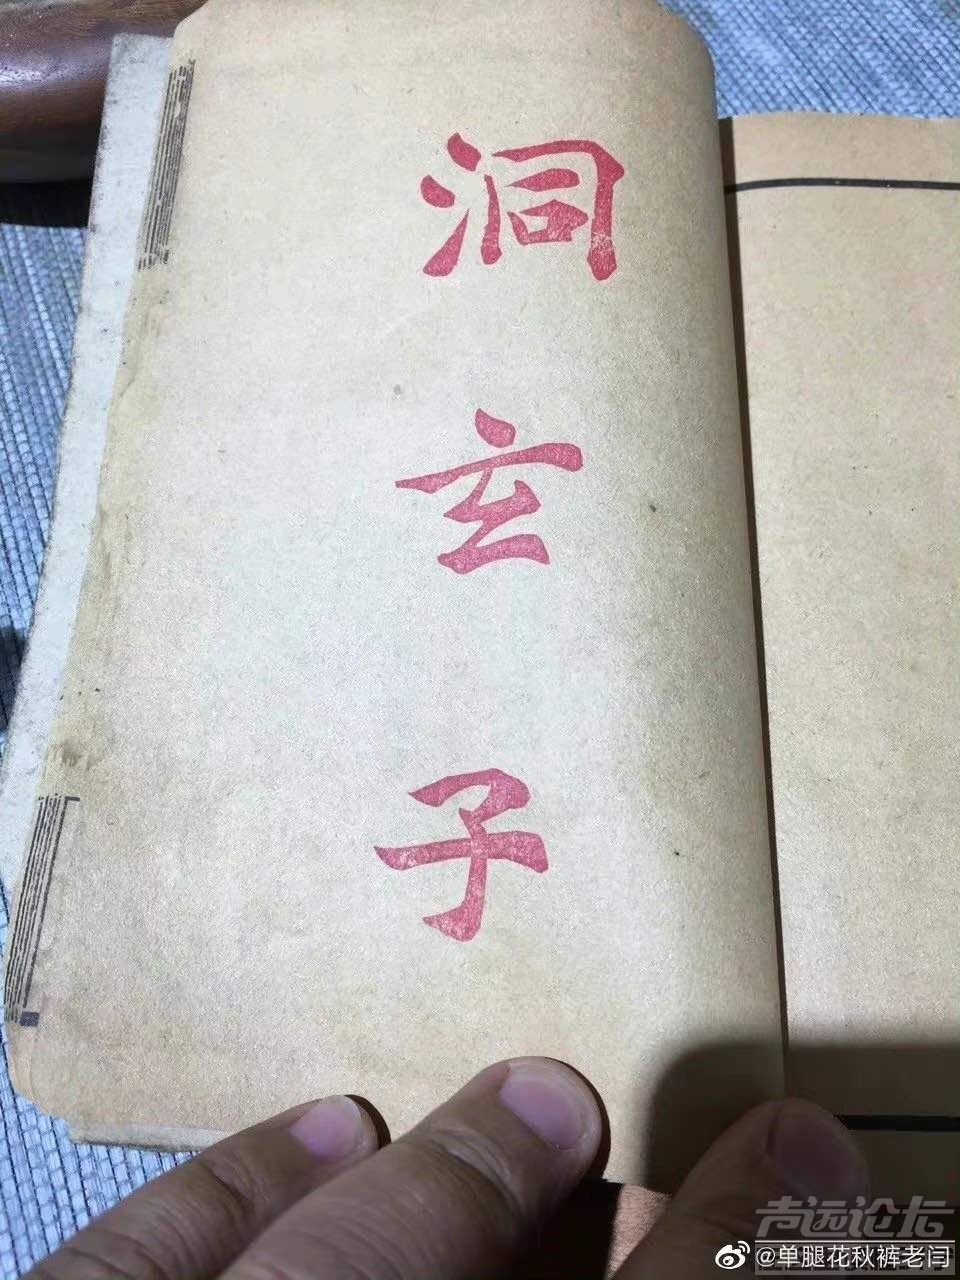 洞玄子
声远论坛
@单腿花秋裤老闫